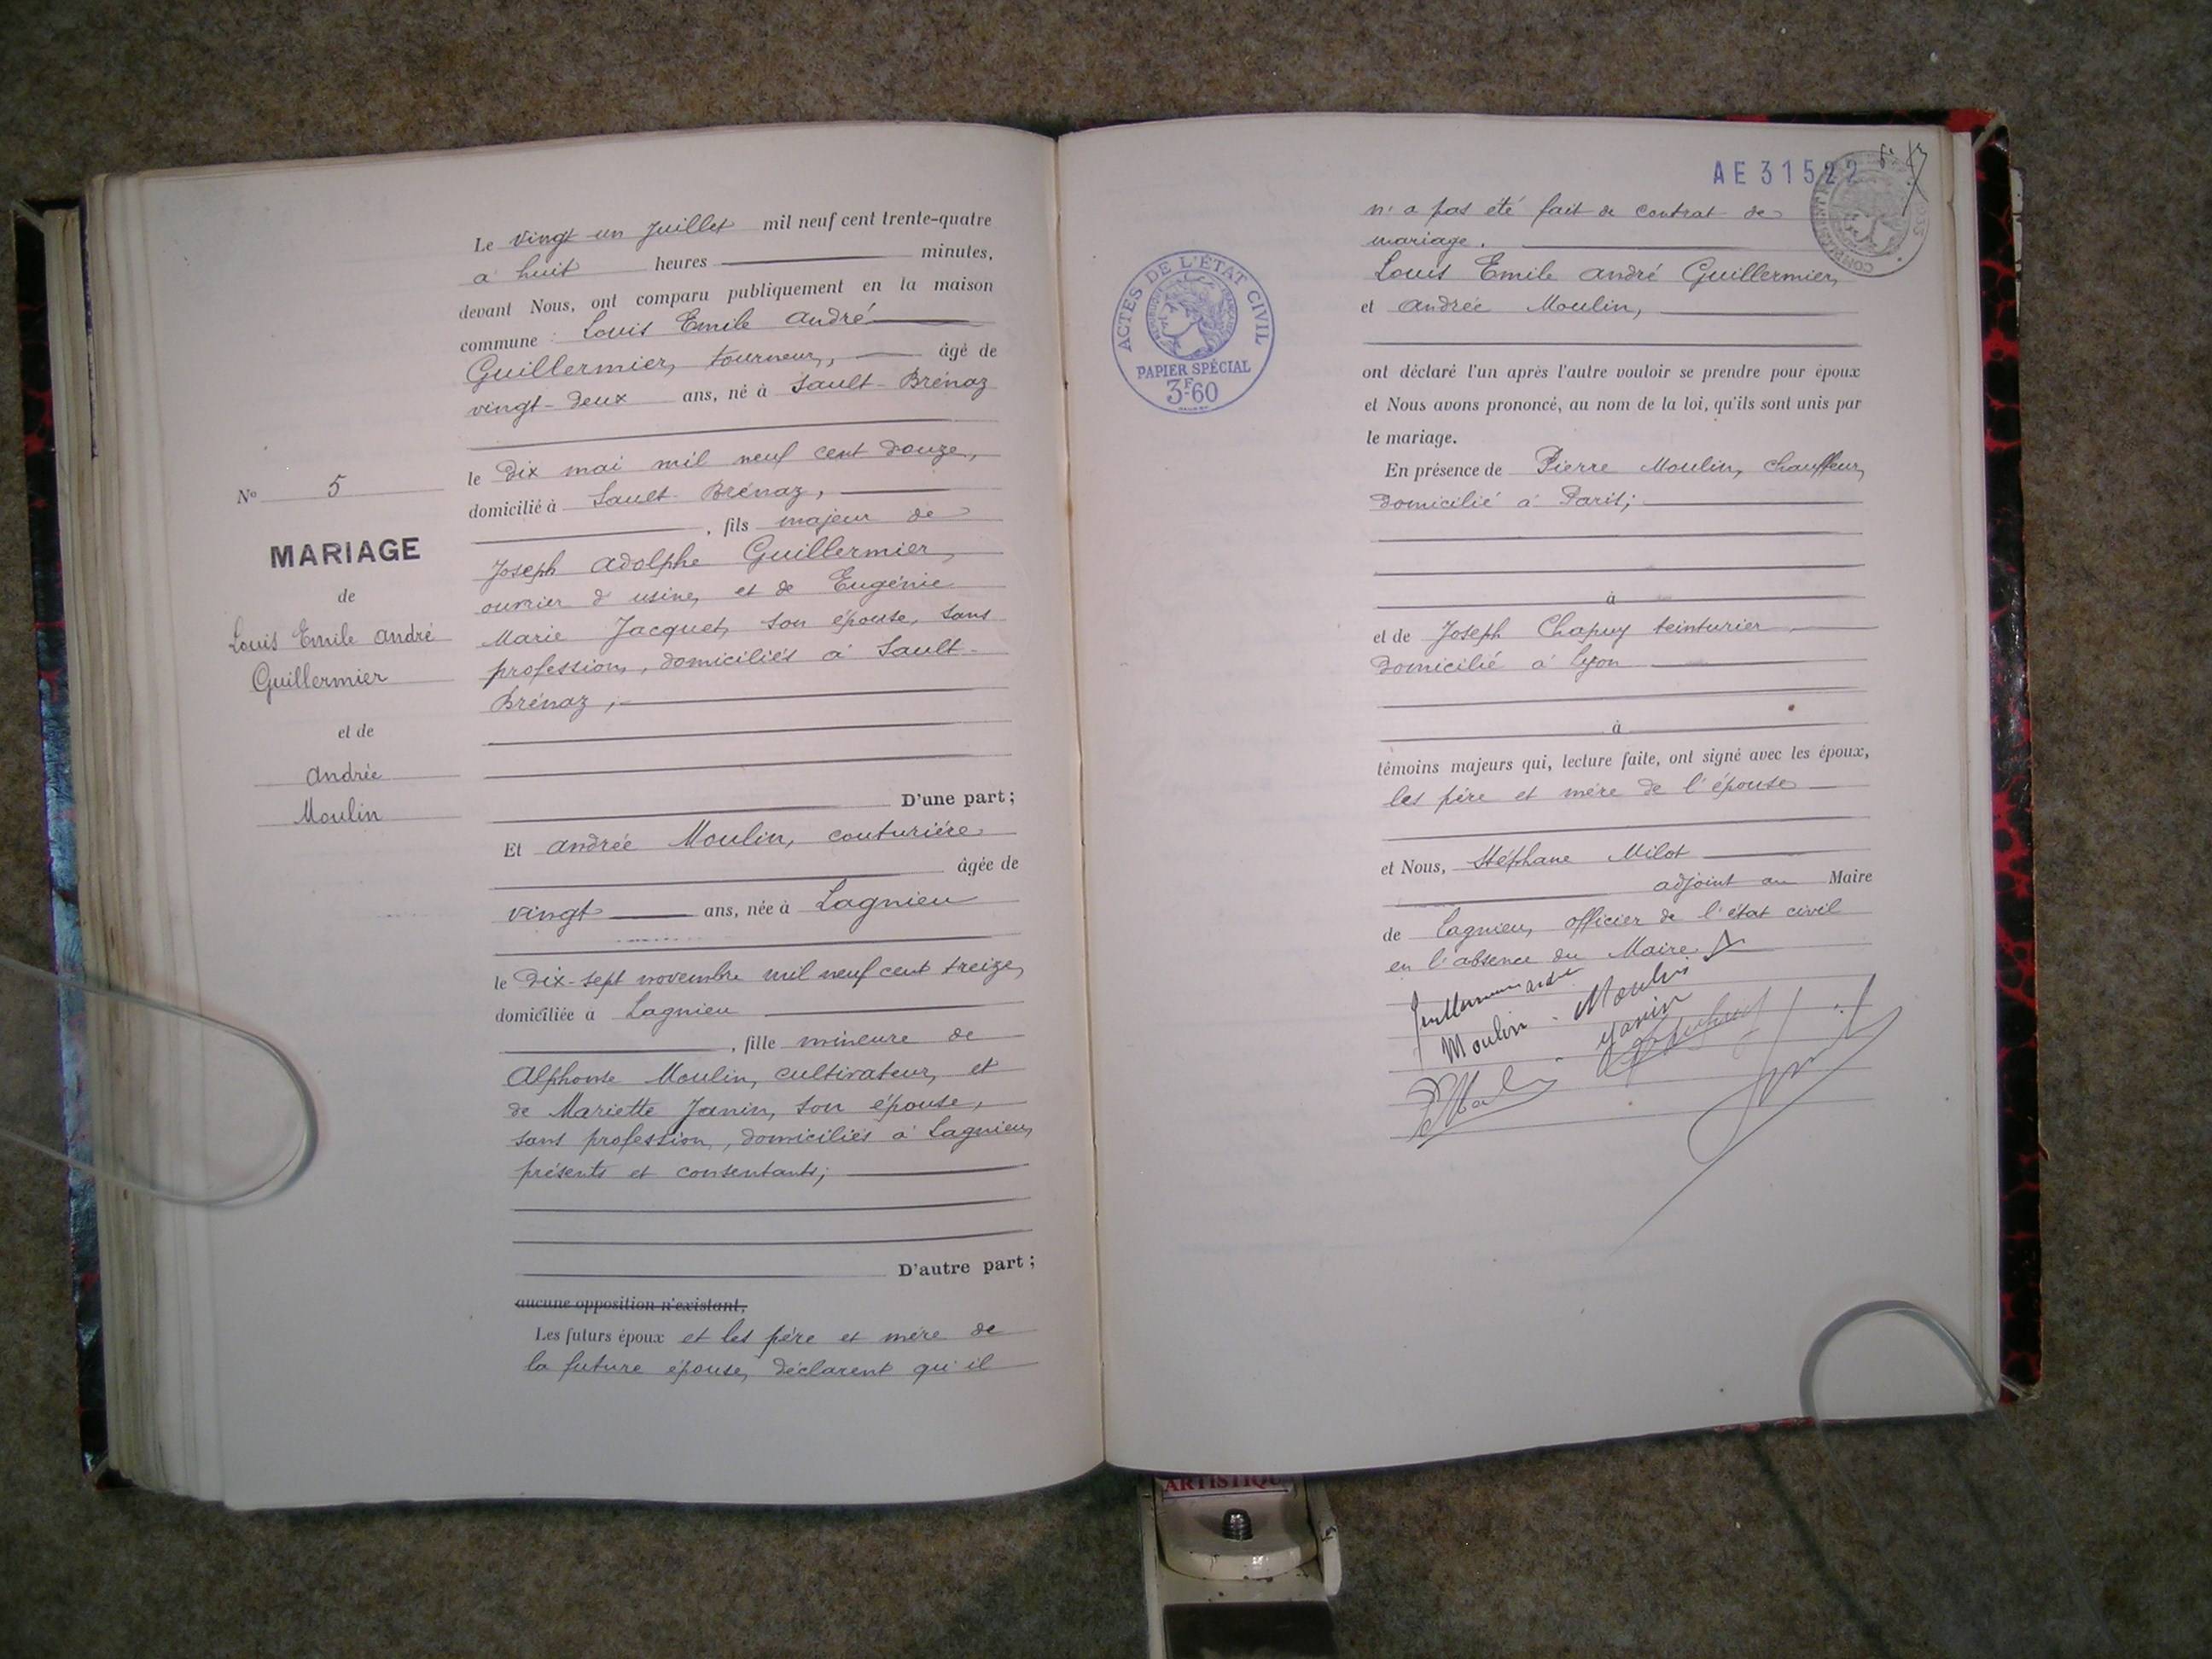 Nº 5
MARIAGE
de
Louis Emile André
Guillermier
et de
Andrée
Moulin
Le vingt un Juillet mil neuf cent trente-quatre
à huit heures minutes,
devant Nous, ont comparu publiquement en la maison
commune : Louis Emile André
Guillermier, tourneur, âgé de
vingt-deux ans, né à Sault-Brénaz
le dix mai mil neuf cent douze,
domicilié à Sault-Brénaz,
, fils majeur de
Joseph Adolphe Guillermier,
ouvrier d'usine, et de Eugénie
Marie Jacquet, son épouse, sans
profession, domiciliés à Sault-
Brénaz ;
D'une part ;
Et Andrée Moulin, couturière
âgée de
vingt ans, née à Lagnieu
le dix-sept novembre mil neuf cent treize,
domiciliée à Lagnieu
, fille mineure de
Alphonse Moulin, cultivateur, et
de Mariette Janin, son épouse,
sans profession, domiciliés à Lagnieu,
présents et consentants ;
D'autre part ;
aucune opposition n'existant,
Les futurs époux et les père et mère de
la future épouse, déclarent qu'il
AE 31522
n'a pas été fait de contrat de
mariage.
Louis Emile André Guillermier,
et Andrée Moulin,
ACTES DE L'ÉTAT CIVIL
RÉPUBLIQUE FRANÇAISE
PAPIER SPÉCIAL
3F.60
ont déclaré l'un après l'autre vouloir se prendre pour époux
et Nous avons prononcé, au nom de la loi, qu'ils sont unis par
le mariage.
En présence de Pierre Moulin, chauffeur,
domicilié à Paris ;
à
et de Joseph Chapuy teinturier
domicilié à Lyon
à
témoins majeurs qui, lecture faite, ont signé avec les époux,
les père et mère de l'épouse
et Nous, Stéphane Milot
adjoint au Maire
de Lagnieu, officier de l'état civil
en l'absence du Maire
Guillermier André
Moulin - Moulin
Janin
ARTISTIQU